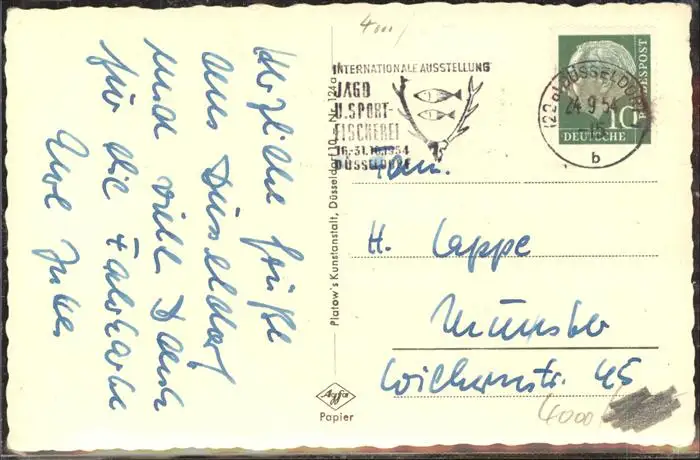 4000
Herzliche Grüße
aus Düsseldorf
und viele Dank
für die Fahrkarte
Eure
INTERNATIONALE AUSSTELLUNG
JAGD
U. SPORT-
FISCHEREI
16.-31.10.1954
DÜSSELDORF
(22a) DÜSSELDORF
24.9.54
b
10
DEUTSCHE
BUNDESPOST
Fam.
H. Lappe
Münster
Wichernstr. 45
4000
Platow's Kunstanstalt, Düsseldorf 10 — Nr. 124a
Agfa
Papier